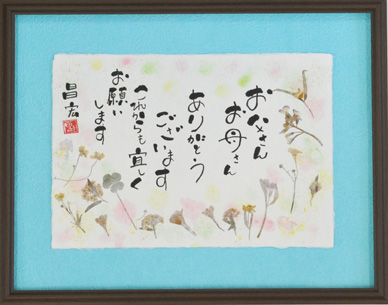 お父さん
お母さん
ありがとう
ございます
これからも宜しく
お願い
します
昌宏